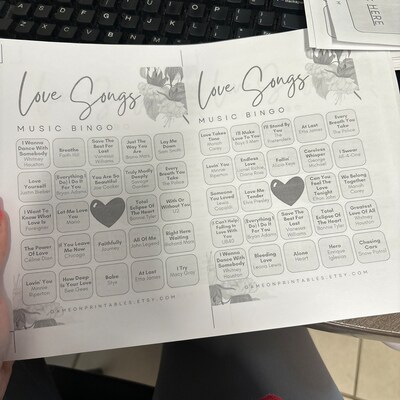 Love Songs
MUSIC BINGO
I Wanna
Dance With
Somebody
Whitney
Houston
Breathe
Faith Hill
Save The
Best For
Last
Vanessa
Williams
Just The
Way You
Are
Bruno Mars
Lay Me
Down
Sam Smith
Love
Yourself
Justin Bieber
Everything I
Do I Do It
For You
Bryan Adams
You Are So
Beautiful
Joe Cocker
Truly Madly
Deeply
Savage
Garden
Every Breath
You Take
The Police
I Want To
Know What
Love Is
Foreigner
Let Me Love
You
Mario
Total
Eclipse Of
The Heart
Bonnie Tyler
With Or
Without You
U2
The Power
Of Love
Celine Dion
If You
Leave Me Now
Chicago
Faithfully
Journey
All Of Me
John Legend
Right Here
Waiting
Richard Marx
Lovin' You
Minnie
Riperton
How Deep
Is Your Love
Bee Gees
Babe
Styx
At Last
Etta James
I Try
Macy Gray
GAMEONPRINTABLES.ETSY.COM
Love Songs
MUSIC BINGO
Love Takes
Time
Mariah
Carey
I'll Make
Love To You
Boyz II Men
I'll Stand By
You
The
Pretenders
At Last
Etta James
Every
Breath You
Take
The Police
Lovin' You
Minnie
Riperton
Endless
Love
Lionel Richie
Diana Ross
Fallin'
Alicia Keys
Careless
Whisper
George
Michael
I Swear
All-4-One
Someone
You Loved
Lewis
Capaldi
Love Me
Tender
Elvis Presley
Can You
Feel The
Love
Tonight
Elton John
We Belong
Together
Mariah
Carey
(I Can't Help)
Falling In
Love With
You
UB40
Everything I
Do I Do It
For You
Bryan Adams
Save The
Best For
Last
Vanessa
Williams
Total
Eclipse Of
The Heart
Bonnie Tyler
Greatest
Love Of All
Whitney
Houston
I Wanna
Dance With
Somebody
Whitney
Houston
Bleeding
Love
Leona Lewis
Alone
Heart
Hero
Enrique
Iglesias
Chasing
Cars
Snow Patrol
GAMEONPRINTABLES.ETSY.COM
HERE